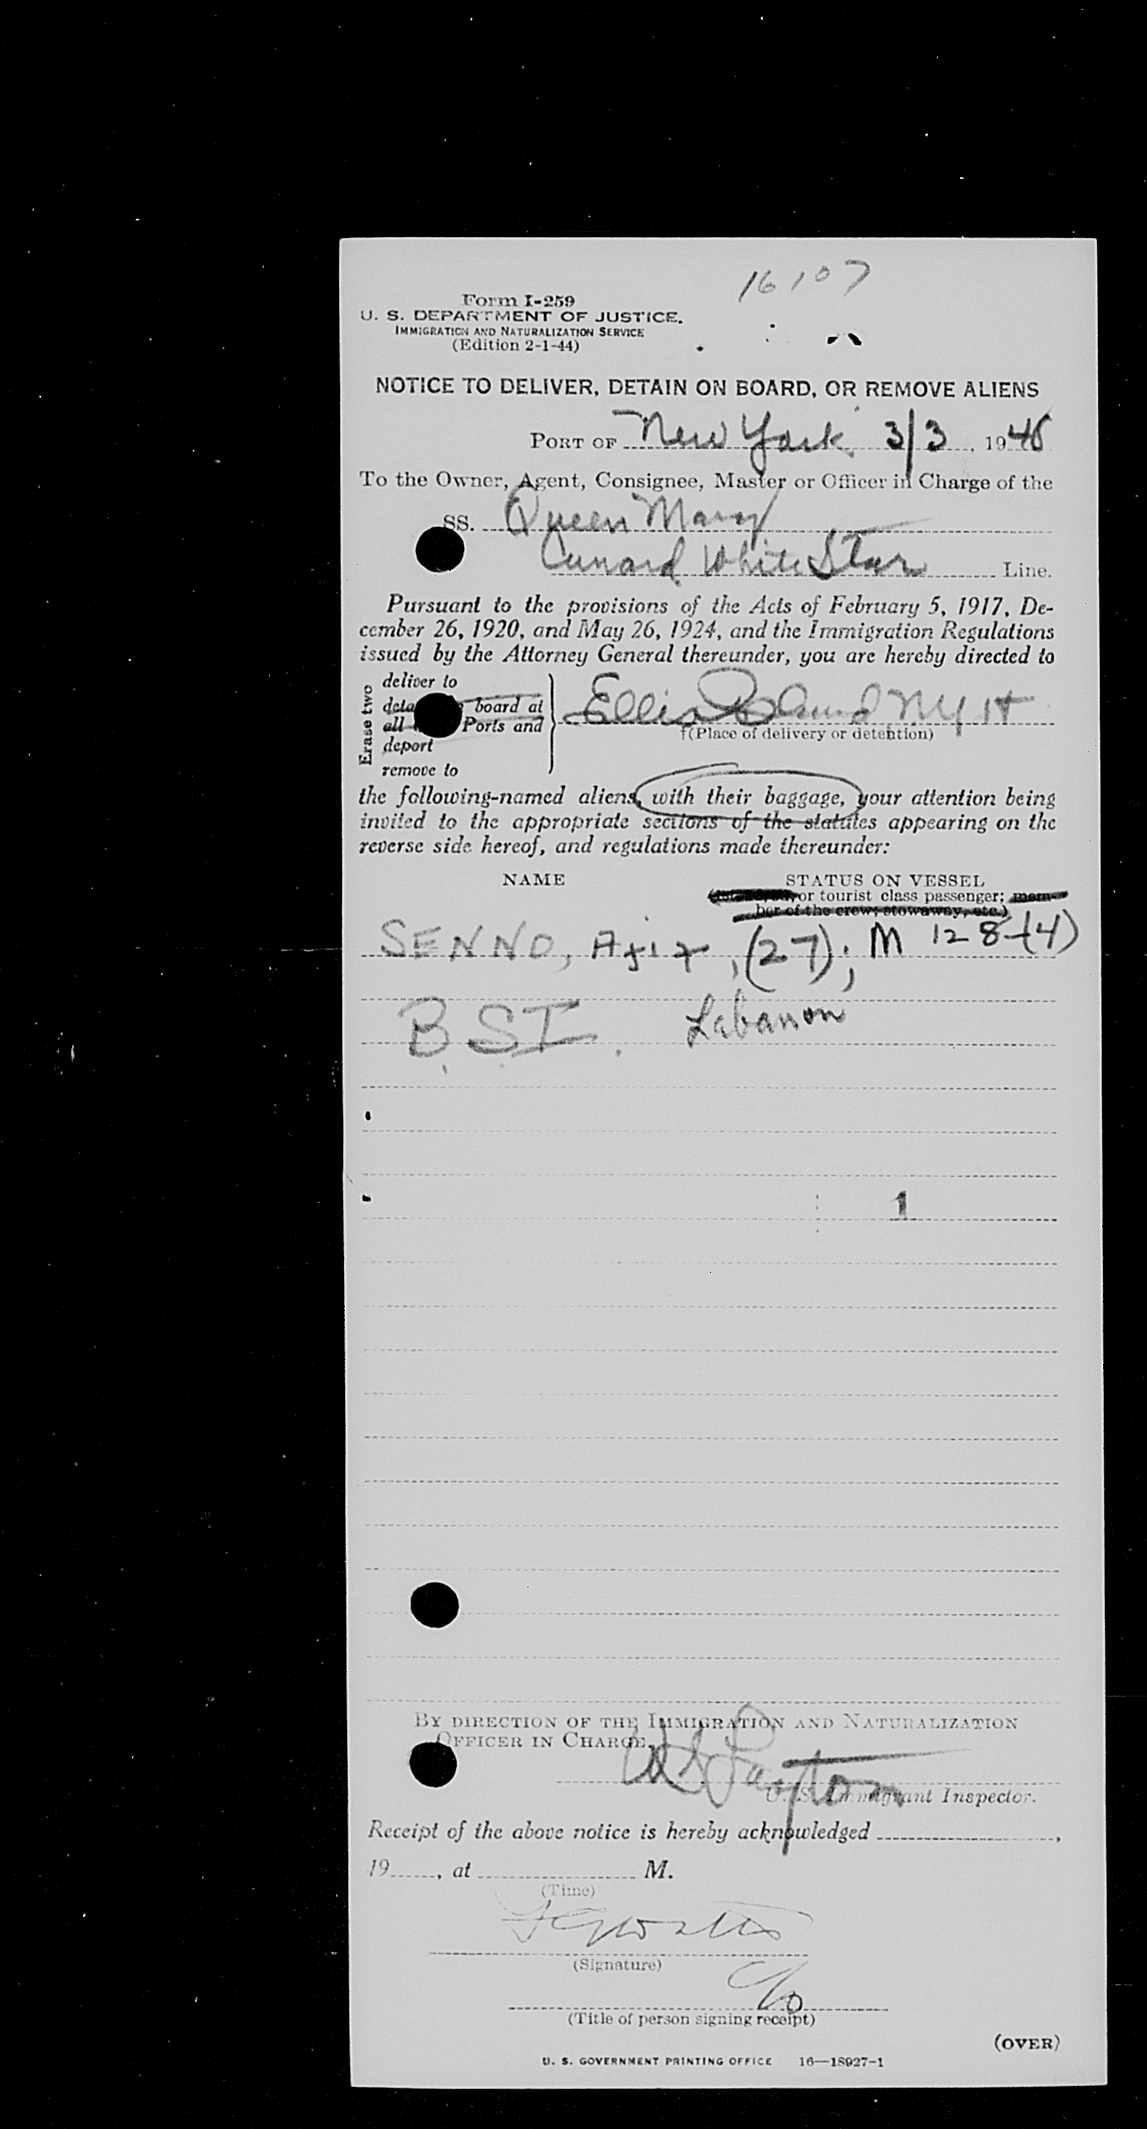 16107
Form I-259
U. S. DEPARTMENT OF JUSTICE.
IMMIGRATION AND NATURALIZATION SERVICE
(Edition 2-1-44)
NOTICE TO DELIVER, DETAIN ON BOARD, OR REMOVE ALIENS
PORT OF New York 3/3, 1946
To the Owner, Agent, Consignee, Master or Officer in Charge of the
SS. Queen Mary
Cunard White Star Line.
Pursuant to the provisions of the Acts of February 5, 1917, De-
cember 26, 1920, and May 26, 1924, and the Immigration Regulations
issued by the Attorney General thereunder, you are hereby directed to
Erase two
deliver to
board at
all Ports and
deport
remove to
Ellis Island NY H
†(Place of delivery or detention)
the following-named aliens, with their baggage, your attention being
invited to the appropriate sections of the statutes appearing on the
reverse side hereof, and regulations made thereunder:
NAME STATUS ON VESSEL
or tourist class passenger; mem-
ber of the crew; stowaway, etc.)
SENNO, Aziz, (27); M 12 8-(4)
B.S.I. Lebanon
1
BY DIRECTION OF THE IMMIGRATION AND NATURALIZATION
OFFICER IN CHARGE.
U. S. Immigrant Inspector.
Receipt of the above notice is hereby acknowledged
19 , at M.
(Time)
(Signature)
C/o
(Title of person signing receipt)
(OVER)
U. S. GOVERNMENT PRINTING OFFICE 16—18927-1